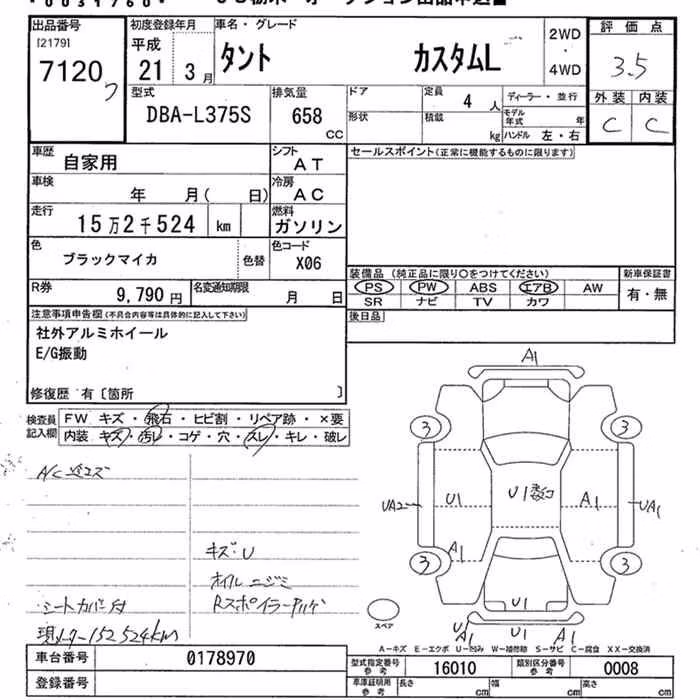 出品番号
[2179]
7120
初度登録年月
平成
21 3月
車名・グレード
タント カスタムL
2WD
4WD
評価点
3.5
外装 内装
C C
型式
DBA-L375S
排気量
658
CC
ドア
形状
定員
4 人
積載
kg
ディーラー・並行
モデル年式 年
ハンドル 左・右
車歴 自家用
シフト AT
セールスポイント(正常に機能するものに限ります)
車検 年 月( 日)
冷房 AC
走行 15万2千524 km
燃料 ガソリン
色 ブラックマイカ 色替
色コード X06
装備品 (純正品に限り○をつけてください)
PS PW ABS エアB AW
SR ナビ TV カワ
新車保証書
有・無
R券 9,790円
名変通知期限 月 日
後日品
注意事項申告欄(不具合内容等は具体的に記入して下さい)
社外アルミホイール
E/G振動
修復歴 有〔箇所 〕
検査員記入欄
FW キズ・飛石・ヒビ割・リペア跡・×要
内装 キズ・汚レ・コゲ・穴・スレ・キレ・破レ
キズ・U
ホイルニジミ
シートカバー付
現メーター152524km
A1
3 3
UA2 U1 U1 A1 UA1
A1
3 3
U1
U1
A1 U1 A1
スペア
A-キズ E-エクボ U-凹み W-補修跡 S-サビ C-腐食 XX-交換済
車台番号 0178970
登録番号
型式指定番号参考 16010
類別区分番号参考 0008
車庫証明用参考 長さ cm 幅 cm 高さ cm